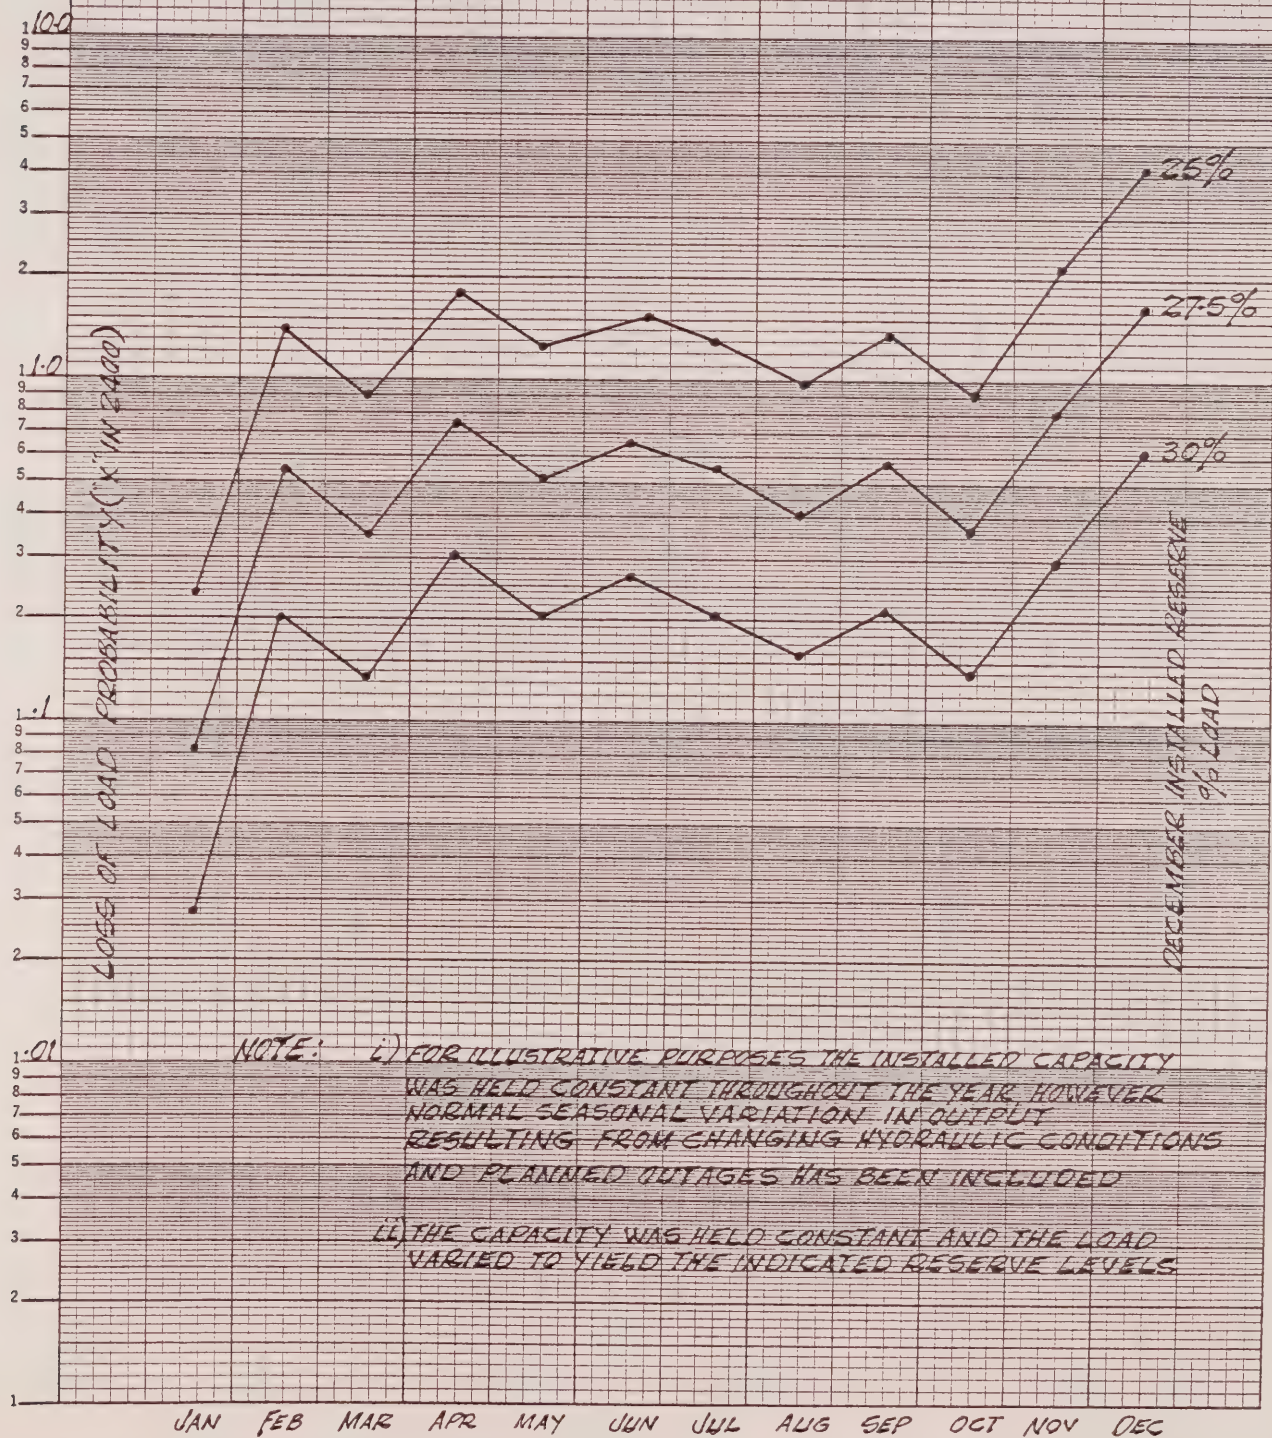 1 10.0
9
8
7
6
5
4
3
2
1 1.0
9
8
7
6
5
4
3
2
1 .1
9
8
7
6
5
4
3
2
1 .01
9
8
7
6
5
4
3
2
1
LOSS OF LOAD PROBABILITY ("X" IN 2400)
25%
27.5%
30%
DECEMBER INSTALLED RESERVE
% LOAD
NOTE: i) FOR ILLUSTRATIVE PURPOSES THE INSTALLED CAPACITY
WAS HELD CONSTANT THROUGHOUT THE YEAR HOWEVER
NORMAL SEASONAL VARIATION IN OUTPUT
RESULTING FROM CHANGING HYDRAULIC CONDITIONS
AND PLANNED OUTAGES HAS BEEN INCLUDED
ii) THE CAPACITY WAS HELD CONSTANT AND THE LOAD
VARIED TO YIELD THE INDICATED RESERVE LEVELS
JAN FEB MAR APR MAY JUN JUL AUG SEP OCT NOV DEC